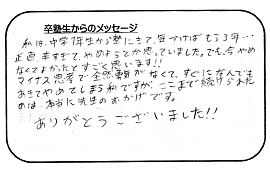 卒塾生からのメッセージ
私は、中学1年生から塾にきて、気づけばもう3年…
正直、辛すぎて、やめようとか思っていました。でも、今やめ
なくてよかったとすごく思います!!
マイナス思考で全然動がなくて、すぐになんでも
あきてやめてしまう私ですが、ここまで続けられた
のは、本当に先生のおかげです。
ありがとうございました!!